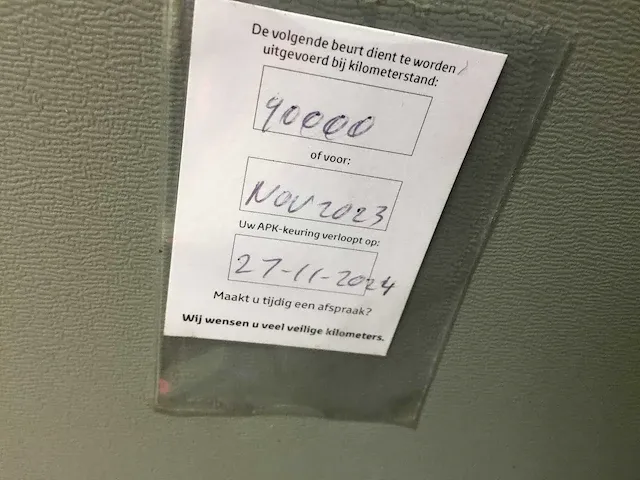 De volgende beurt dient te worden
uitgevoerd bij kilometerstand:
90000
of voor:
NOV 2023
Uw APK-keuring verloopt op:
27-11-2024
Maakt u tijdig een afspraak?
Wij wensen u veel veilige kilometers.